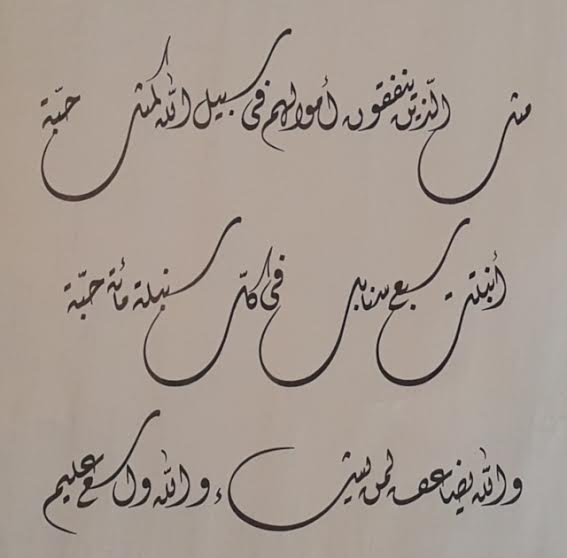 مثل الّذين ينفقون أموالهم في سبيل الله كمثل حبّة
أنبتت سبع سنابل في كلّ سنبلة مائة حبّة
والله يضاعف لمن يشاء والله واسع عليم